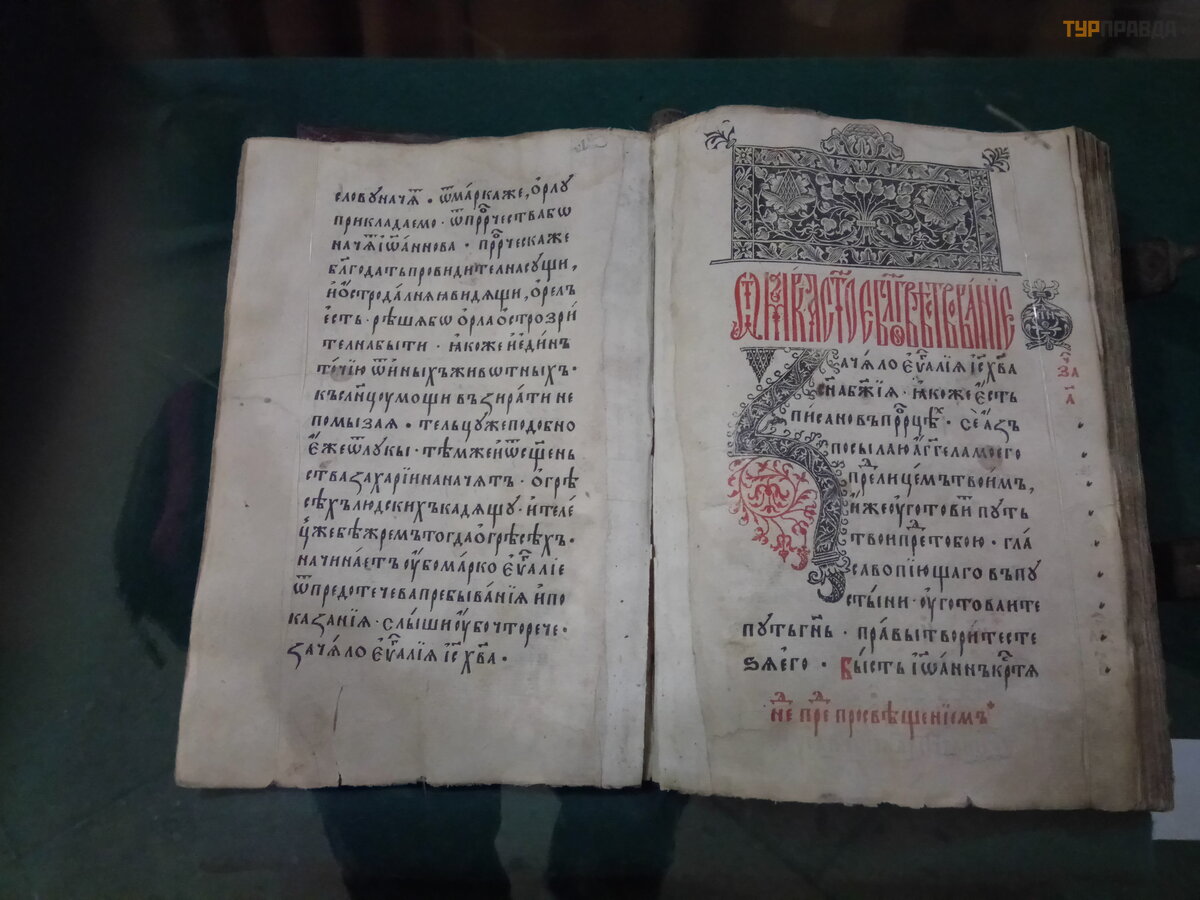 ТУРПРАВДА
словꙋначѧ́т҃ . ѿма́ркаже , ѻ҆рлꙋ
прикладаемо . ѿпрⷪ҇рчествабѡ
нача́т҃ іѡ҆а́ннова . прⷪ҇рческаже
бл҃года́тьпровиди́телнасꙋщи ,
и҆ѻ҆строда́лнѧѧвидѧщи , ѻ҆ре́лъ
е҆сть . рѣшѧбѡ ѻ҆рлаѻ҆строзрі
телнабыти . ꙗ҆́коже и҆е҆ди́нъ
то́чїю ѿи҆ны́хъживѡтныхъ .
къслн҃цꙋмощи възира́ти не
помыза́ѧ . тельцꙋжеподобно
є҆́жеѿлꙋкы . тѣ́мжеи҆ѿсщ҃е́нь
стваза́харїинанача́тъ . ѻ҆грѣ
сѣ́хълюдскихъкадѧщꙋ . и҆теле́
ц҃жебѣ́жремътогдаѻ҆грѣсѣ́хъ .
начина́етъ ᲂу҆́бомарко є҆ѵⷢ҇а́лїе
ѿпредотечевапребыва́нїѧ и҆по
каза́нїѧ . слы́шиᲂу҆́бочторече .
зача́ло є҆ѵⷢ҇а́лїѧ і҆с҃ х҃ва .
зача́ло є҆ѵⷢ҇а́лїѧ і҆с҃ х҃ва
сн҃аб҃жїѧ . ꙗ҆́коже є҆́сть
писановъпрⷪ҇рцѣ́хъ . се́ а҆́зъ
посылаю а҆́гг҃еламоего
прⷣелице́мътвоимъ ,
и҆́жеᲂу҆гото́витъ пꙋть
твоипрⷣетобою . гла
савопїющаго въпꙋ
сты́ни . ᲂу҆готоваите
пꙋтьгн҃ь . пра́вытвори́тесте
зѧ є҆го . Бы́сть і҆ѡа́ннъкрⷭ҇тѧ
за
а҃
нⷣе прⷣе просвѣщенїемъ